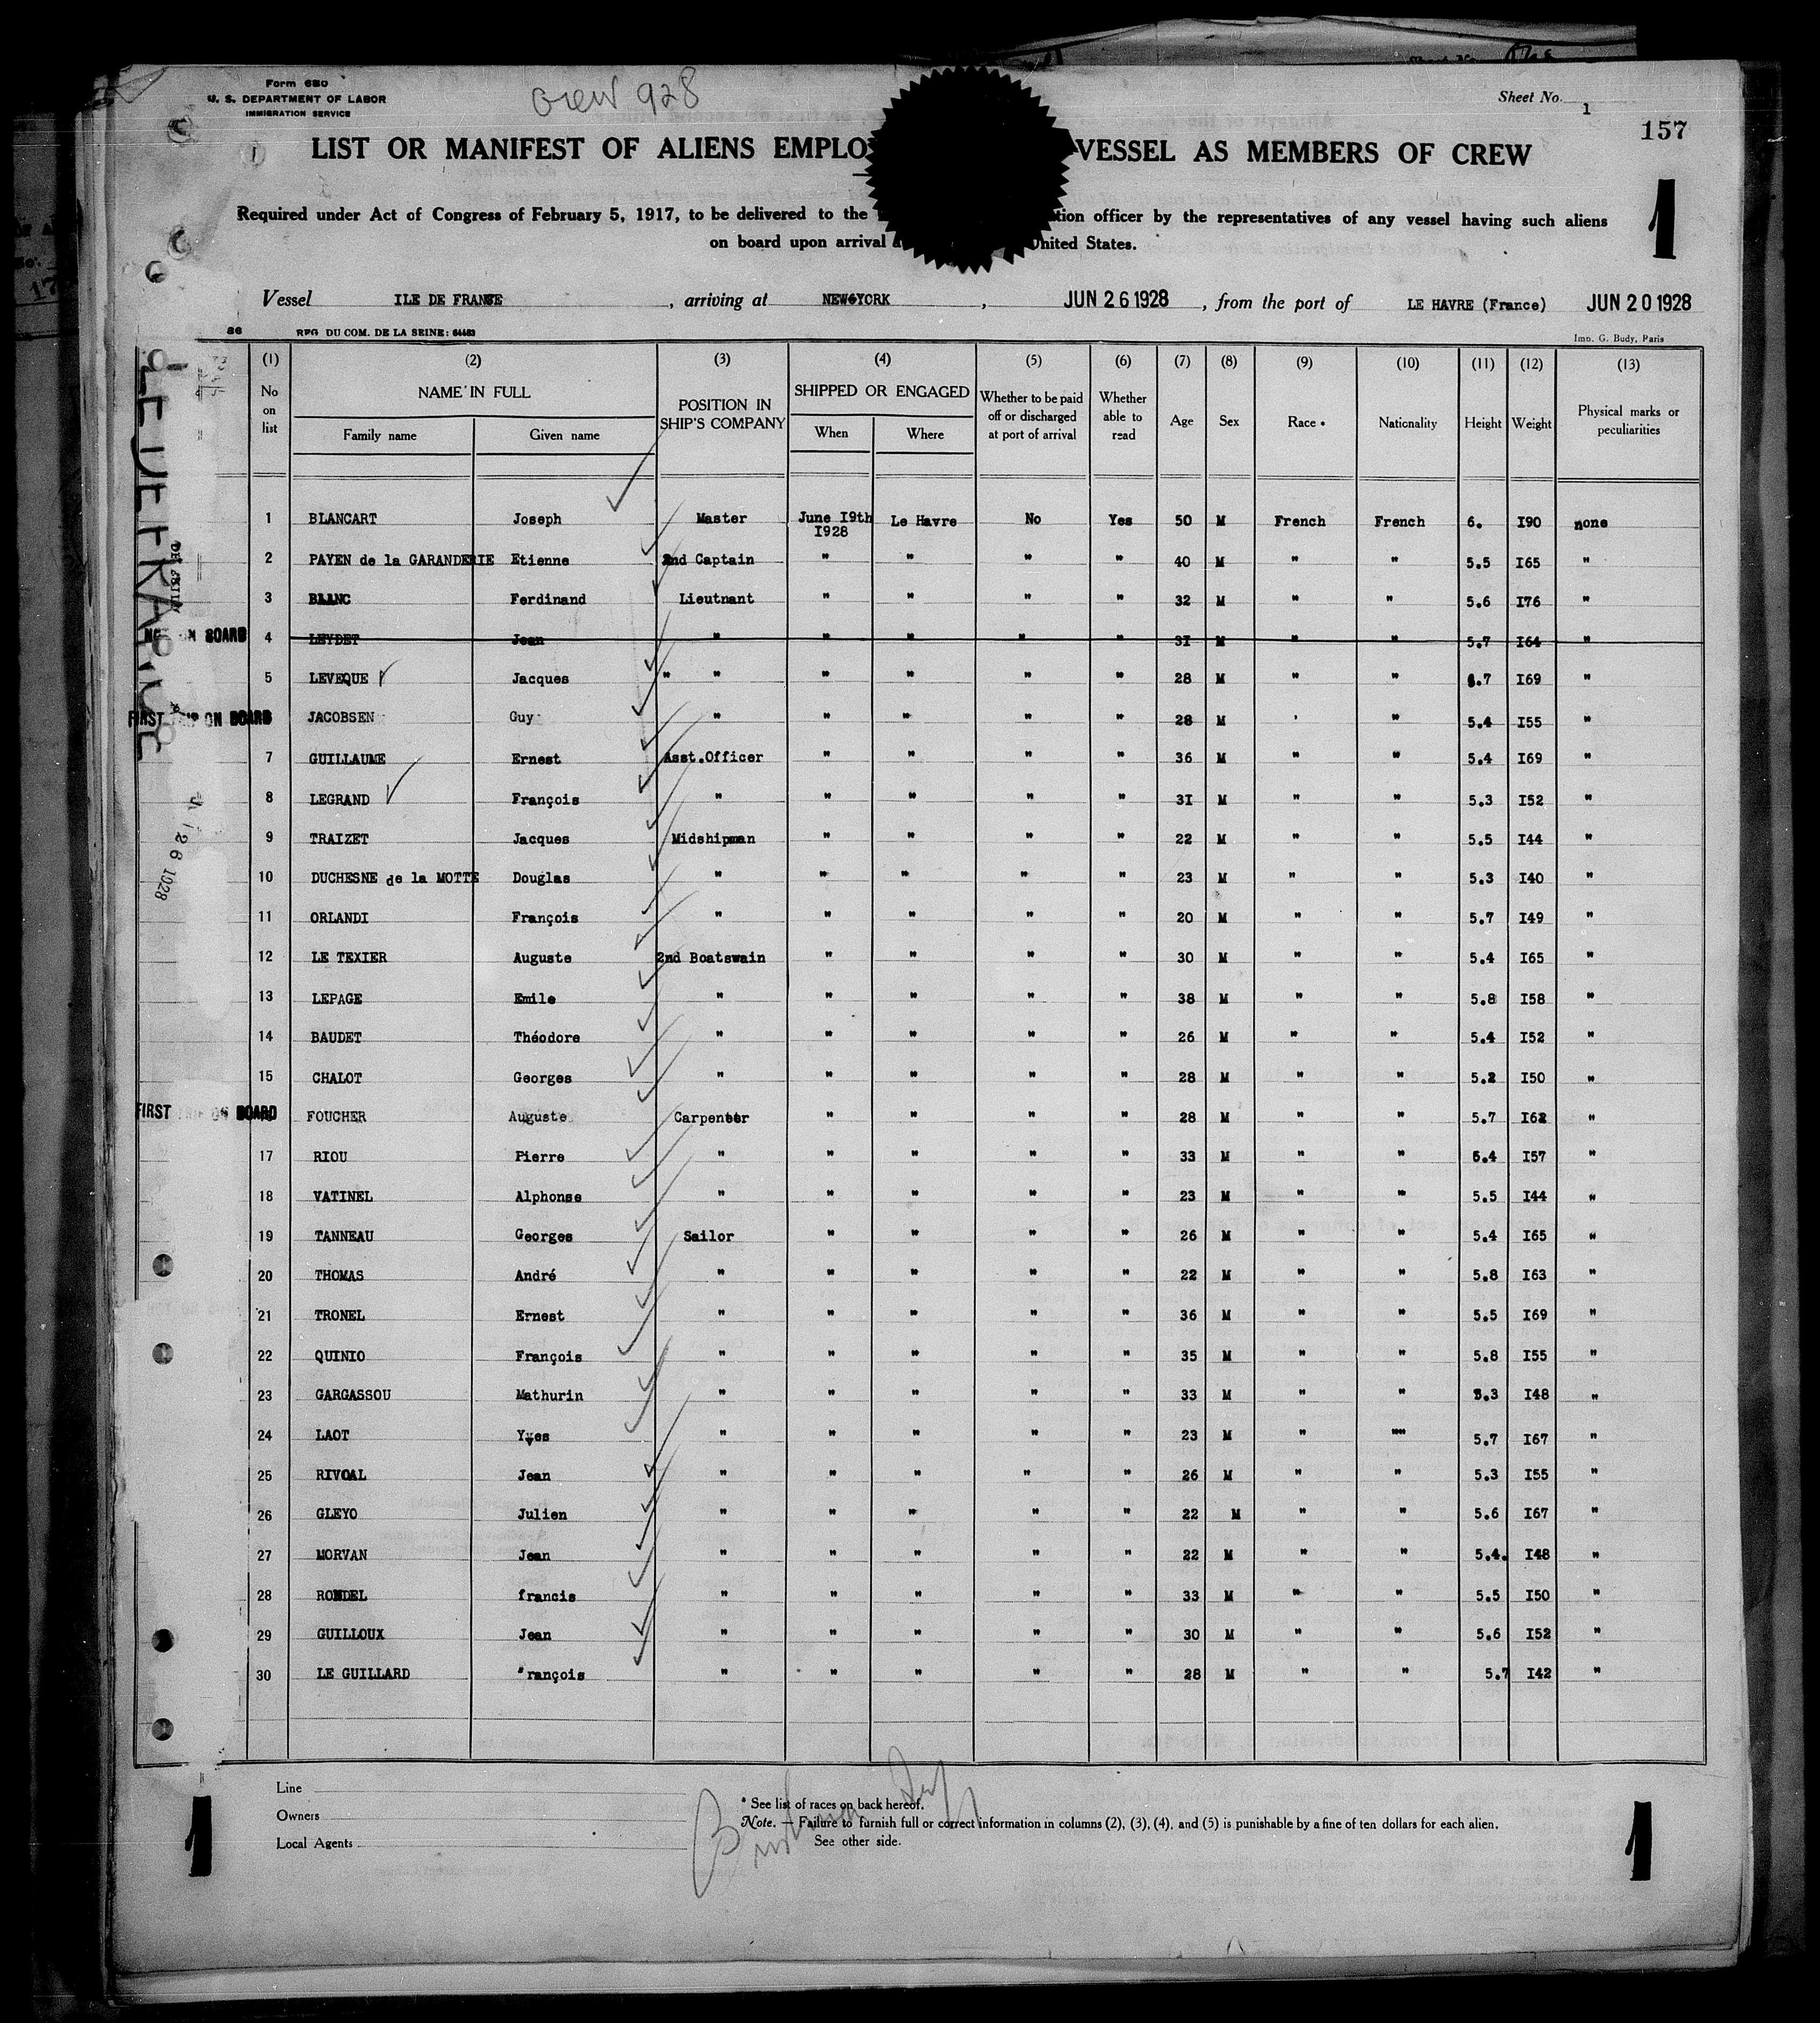 Form 680
U. S. DEPARTMENT OF LABOR
IMMIGRATION SERVICE
Crew 928
Sheet No. 1
157
LIST OR MANIFEST OF ALIENS EMPLO VESSEL AS MEMBERS OF CREW
Required under Act of Congress of February 5, 1917, to be delivered to the tion officer by the representatives of any vessel having such aliens
on board upon arrival United States.
1
Vessel ILE DE FRANCE , arriving at NEW YORK , JUN 26 1928 , from the port of LE HAVRE (France) JUN 20 1928
86 REG. DU COM. DE LA SEINE: 64483
Imp. G. Budy, Paris
(1) (2) (3) (4) (5) (6) (7) (8) (9) (10) (11) (12) (13)
No on list NAME IN FULL Family name Given name POSITION IN SHIP'S COMPANY SHIPPED OR ENGAGED When Where Whether to be paid off or discharged at port of arrival Whether able to read Age Sex Race * Nationality Height Weight Physical marks or peculiarities
1 BLANCART Joseph Master June I9th I928 Le Havre No Yes 50 M French French 6. I90 none
2 PAYEN de la GARANDERIE Etienne 2nd Captain " " " " 40 M " " 5.5 I65 "
3 BLANC Ferdinand Lieutnant " " " " 32 M " " 5.6 I76 "
BOARD 4 LEYDET Jean " " " " " 3I M " " 5.7 I64 "
5 LEVEQUE Jacques " " " " " " 28 M " " 5.7 I69 "
FIRST ON BOARD JACOBSEN Guy " " " " " 28 M ' " 5.4 I55 "
7 GUILLAUME Ernest Asst.Officer " " " " 36 M " " 5.4 I69 "
8 LEGRAND François " " " " " 3I M " " 5.3 I52 "
9 TRAIZET Jacques Midshipman " " " " 22 M " " 5.5 I44 "
10 DUCHESNE de la MOTTE Douglas " " " " " 23 M " " 5.3 I40 "
11 ORLANDI François " " " " " 20 M " " 5.7 I49 "
12 LE TEXIER Auguste 2nd Boatswain " " " " 30 M " " 5.4 I65 "
13 LEPAGE Emile " " " " " 38 M " " 5.8 I58 "
14 BAUDET Théodore " " " " " 26 M " " 5.4 I52 "
15 CHALOT Georges " " " " " 28 M " " 5.2 I50 "
FIRST ON BOARD FOUCHER Auguste Carpenter " " " " 28 M " " 5.7 I62 "
17 RIOU Pierre " " " " " 33 M " " 5.4 I57 "
18 VATINEL Alphonse " " " " " 23 M " " 5.5 I44 "
19 TANNEAU Georges Sailor " " " " 26 M " " 5.4 I65 "
20 THOMAS André " " " " " 22 M " " 5.8 I63 "
21 TRONEL Ernest " " " " " 36 M " " 5.5 I69 "
22 QUINIO François " " " " " 35 M " " 5.8 I55 "
23 GARGASSOU Mathurin " " " " " 33 M " " 5.3 I48 "
24 LAOT Yves " " " " " 23 M " "" 5.7 I67 "
25 RIVOAL Jean " " " " " 26 M " " 5.3 I55 "
26 GLEYO Julien " " " " " 22 M " " 5.6 I67 "
27 MORVAN Jean " " " " " 22 M " " 5.4. I48 "
28 RONDEL francis " " " " " 33 M " " 5.5 I50 "
29 GUILLOUX Jean " " " " " 30 M " " 5.6 I52 "
30 LE GUILLARD "rançois " " " " " 28 M " " 5.7 I42 "
Line
Owners
Local Agents
* See list of races on back hereof.
Note. — Failure to furnish full or correct information in columns (2), (3), (4), and (5) is punishable by a fine of ten dollars for each alien.
See other side.
1
1